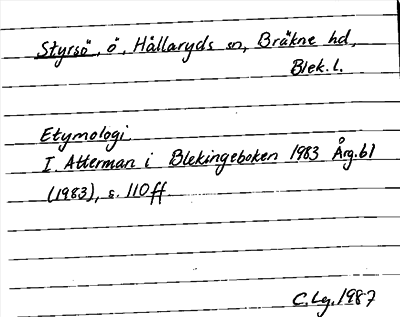 Styrsö, ö, Hällaryds sn, Bräkne hd,
Blek. l.
Etymologi
I. Atterman i Blekingeboken 1983 Årg. 61
(1983), s. 110 ff.
C. Lg. 1987